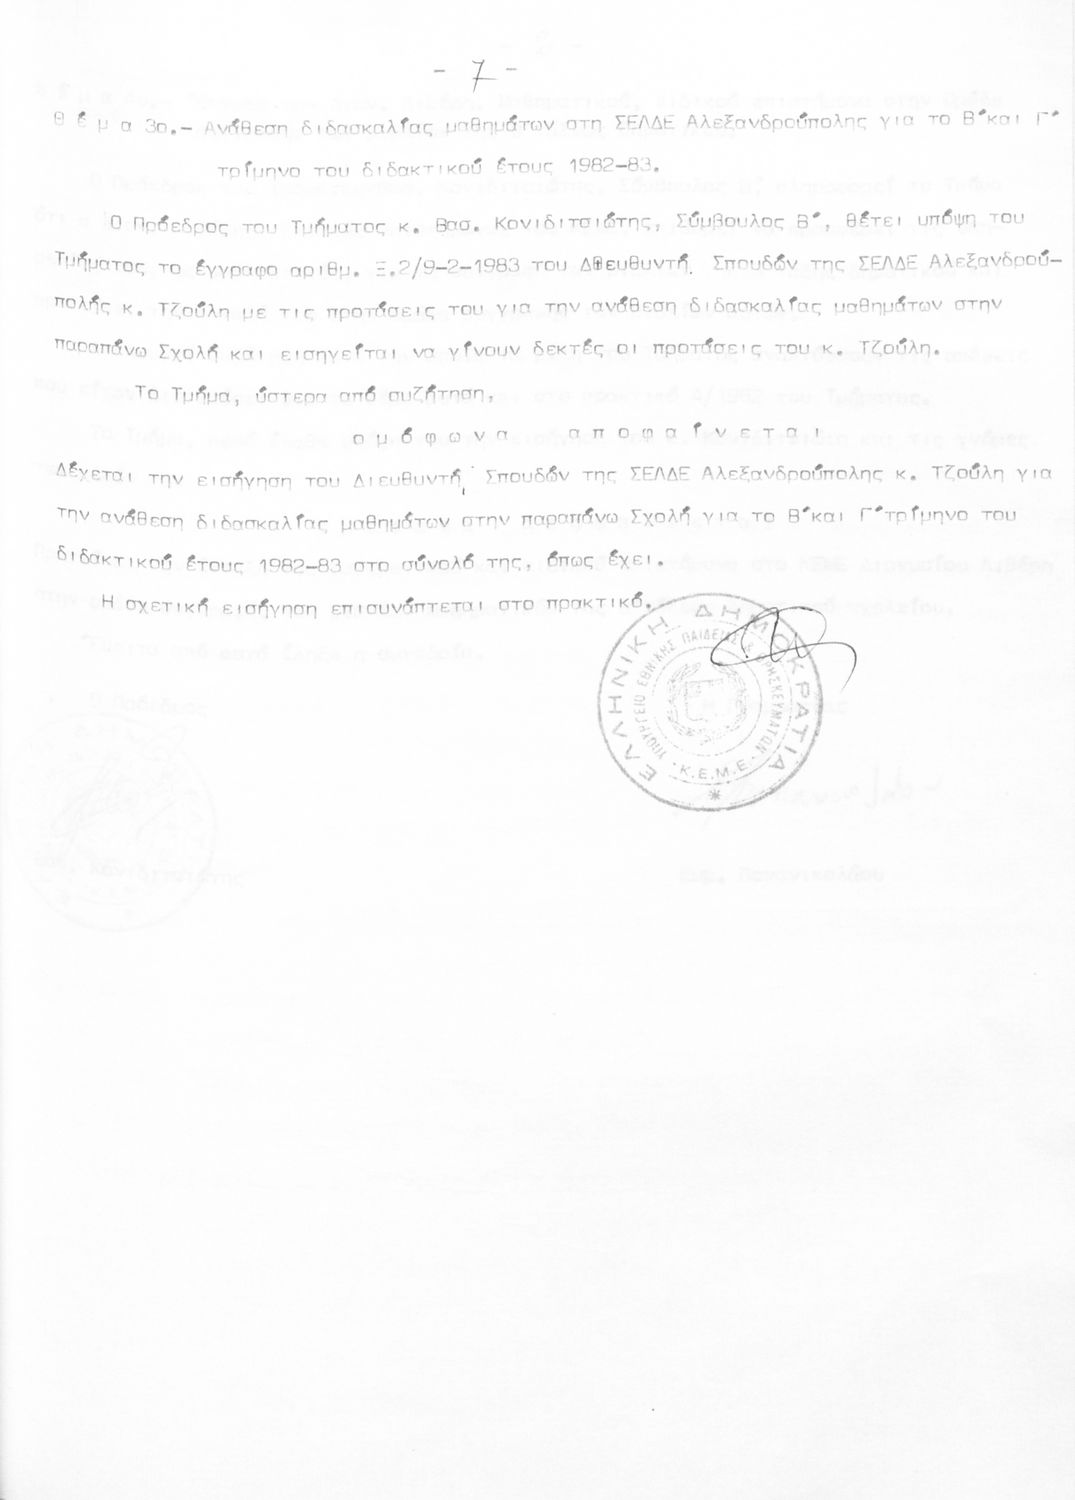 - 7 -
Θ έ μ α 3ο.- Ανάθεση διδασκαλίας μαθημάτων στη ΣΕΛΔΕ Αλεξανδρούπολης για το Β΄και Γ΄
τρίμηνο του διδακτικού έτους 1982-83.
Ο Πρόεδρος του Τμήματος κ. Βασ. Κονιδιτσιώτης, Σύμβουλος Β΄, θέτει υπόψη του
Τμήματος το έγγραφο αριθμ. Ξ.2/9-2-1983 του Διευθυντή Σπουδών της ΣΕΛΔΕ Αλεξανδρού-
πολής κ. Τζούλη με τις προτάσεις του για την ανάθεση διδασκαλίας μαθημάτων στην
παραπάνω Σχολή και εισηγείται να γίνουν δεκτές οι προτάσεις του κ. Τζούλη.
Το Τμήμα, ύστερα από συζήτηση,
ο μ ό φ ω ν α α π ο φ α ί ν ε τ α ι
Δέχεται την εισήγηση του Διευθυντή Σπουδών της ΣΕΛΔΕ Αλεξανδρούπολης κ. Τζούλη για
την ανάθεση διδασκαλίας μαθημάτων στην παραπάνω Σχολή για το Β΄και Γ΄τρίμηνο του
διδακτικού έτους 1982-83 στο σύνολό της, όπως έχει.
Η σχετική εισήγηση επισυνάπτεται στο πρακτικό.
ΕΛΛΗΝΙΚΗ ΔΗΜΟΚΡΑΤΙΑ
ΥΠΟΥΡΓΕΙΟ ΕΘΝΙΚΗΣ ΠΑΙΔΕΙΑΣ & ΘΡΗΣΚΕΥΜΑΤΩΝ
Κ.Ε.Μ.Ε.